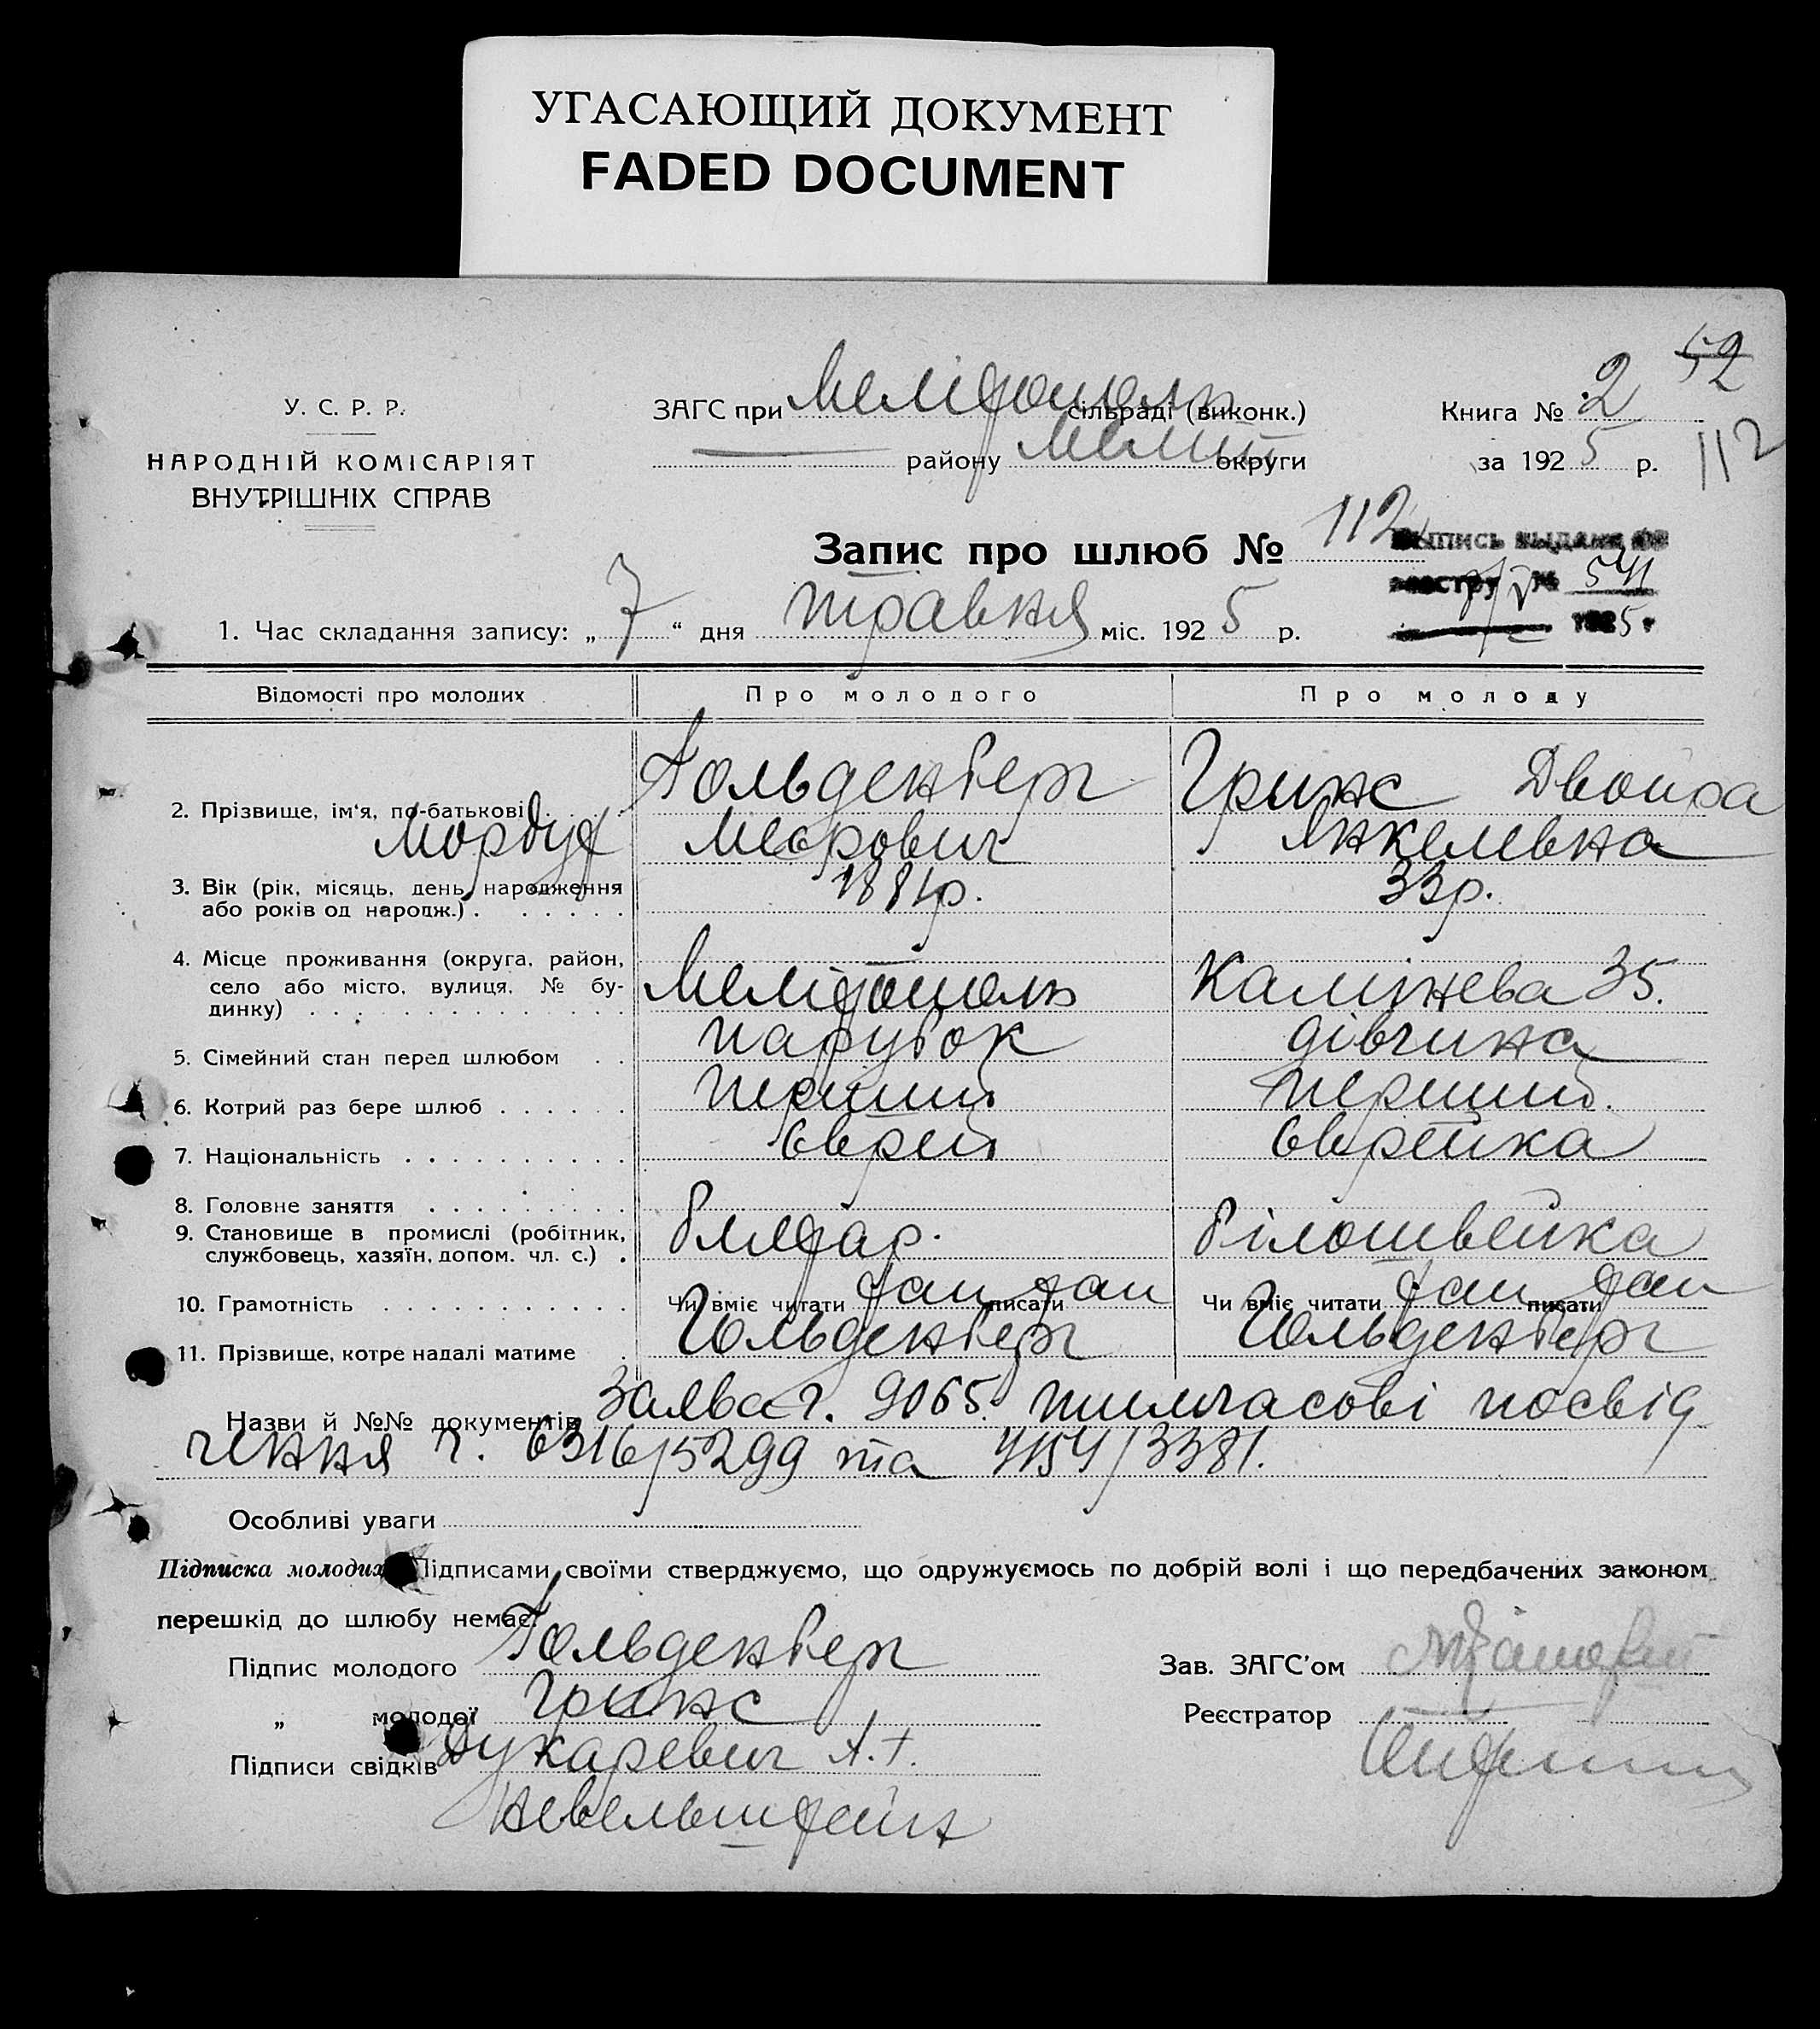 УГАСАЮЩИЙ ДОКУМЕНТ
FADED DOCUMENT
52
У. С. Р. Р.
НАРОДНІЙ КОМІСАРІЯТ
ВНУТРІШНІХ СПРАВ
ЗАГС при Мелітополь сільраді (виконк.)
— району Меліт округи
Книга № 2
за 1925 р.
112
Запис про шлюб № 112
выпись выдана по
реестру № 541
1925 г
1. Час складання запису: „ 7 “ дня травня міс. 1925 р.
Відомості про молодих
Про молодого
Про молоду
2. Прізвище, ім‘я, по-батькові
Гольденберг
Мордух Меєрович
Гринс Двойра
Янкелевна
3. Вік (рік, місяць, день, народження
або років од народж.)
1884р.
33р.
4. Місце проживання (округа, район,
село або місто, вулиця, № бу-
динку)
Мелітополь
Калінева 35.
5. Сімейний стан перед шлюбом
парубок
дівчина
6. Котрий раз бере шлюб
перший
перший.
7. Національність
Єврей
Єврейка
8. Головне заняття
9. Становище в промислі (робітник,
службовець, хазяїн, допом. чл. с.)
білошвейка
10. Грамотність
Чи вміє читати так писати так
Чи вміє читати так писати так
11. Прізвище, котре надалі матиме
Гольденберг
Гольденберг
Назви й №№ документів Заява ч. 9065. тимчасові посвід
чення ч. 6316/5299 та 4154/3381.
Особливі уваги
Підписка молодих Підписами своїми стверджуємо, що одружуємось по добрій волі і що передбачених законом
перешкід до шлюбу немає.
Підпис молодого Гольденберг
„ молодої Гринс
Підписи свідків Дукаревич А.Т.
Невельштейн
Зав. ЗАГС’ом
Реєстратор